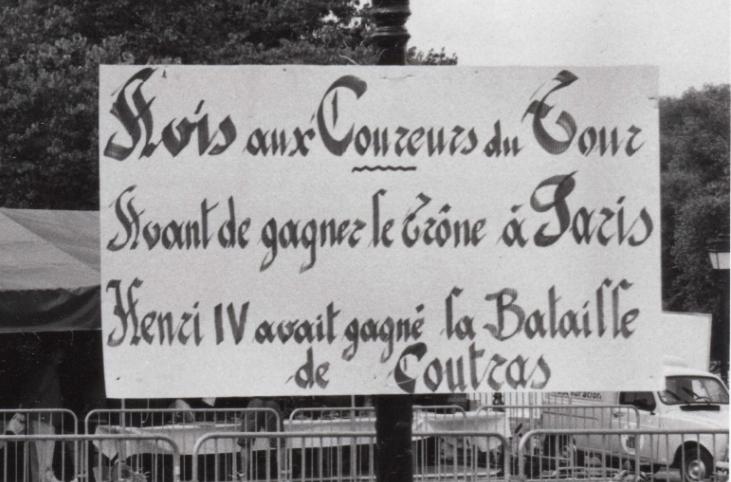 Avis aux Coureurs du Tour
Avant de gagner le Trône à Paris
Henri IV avait gagné la Bataille
de Coutras